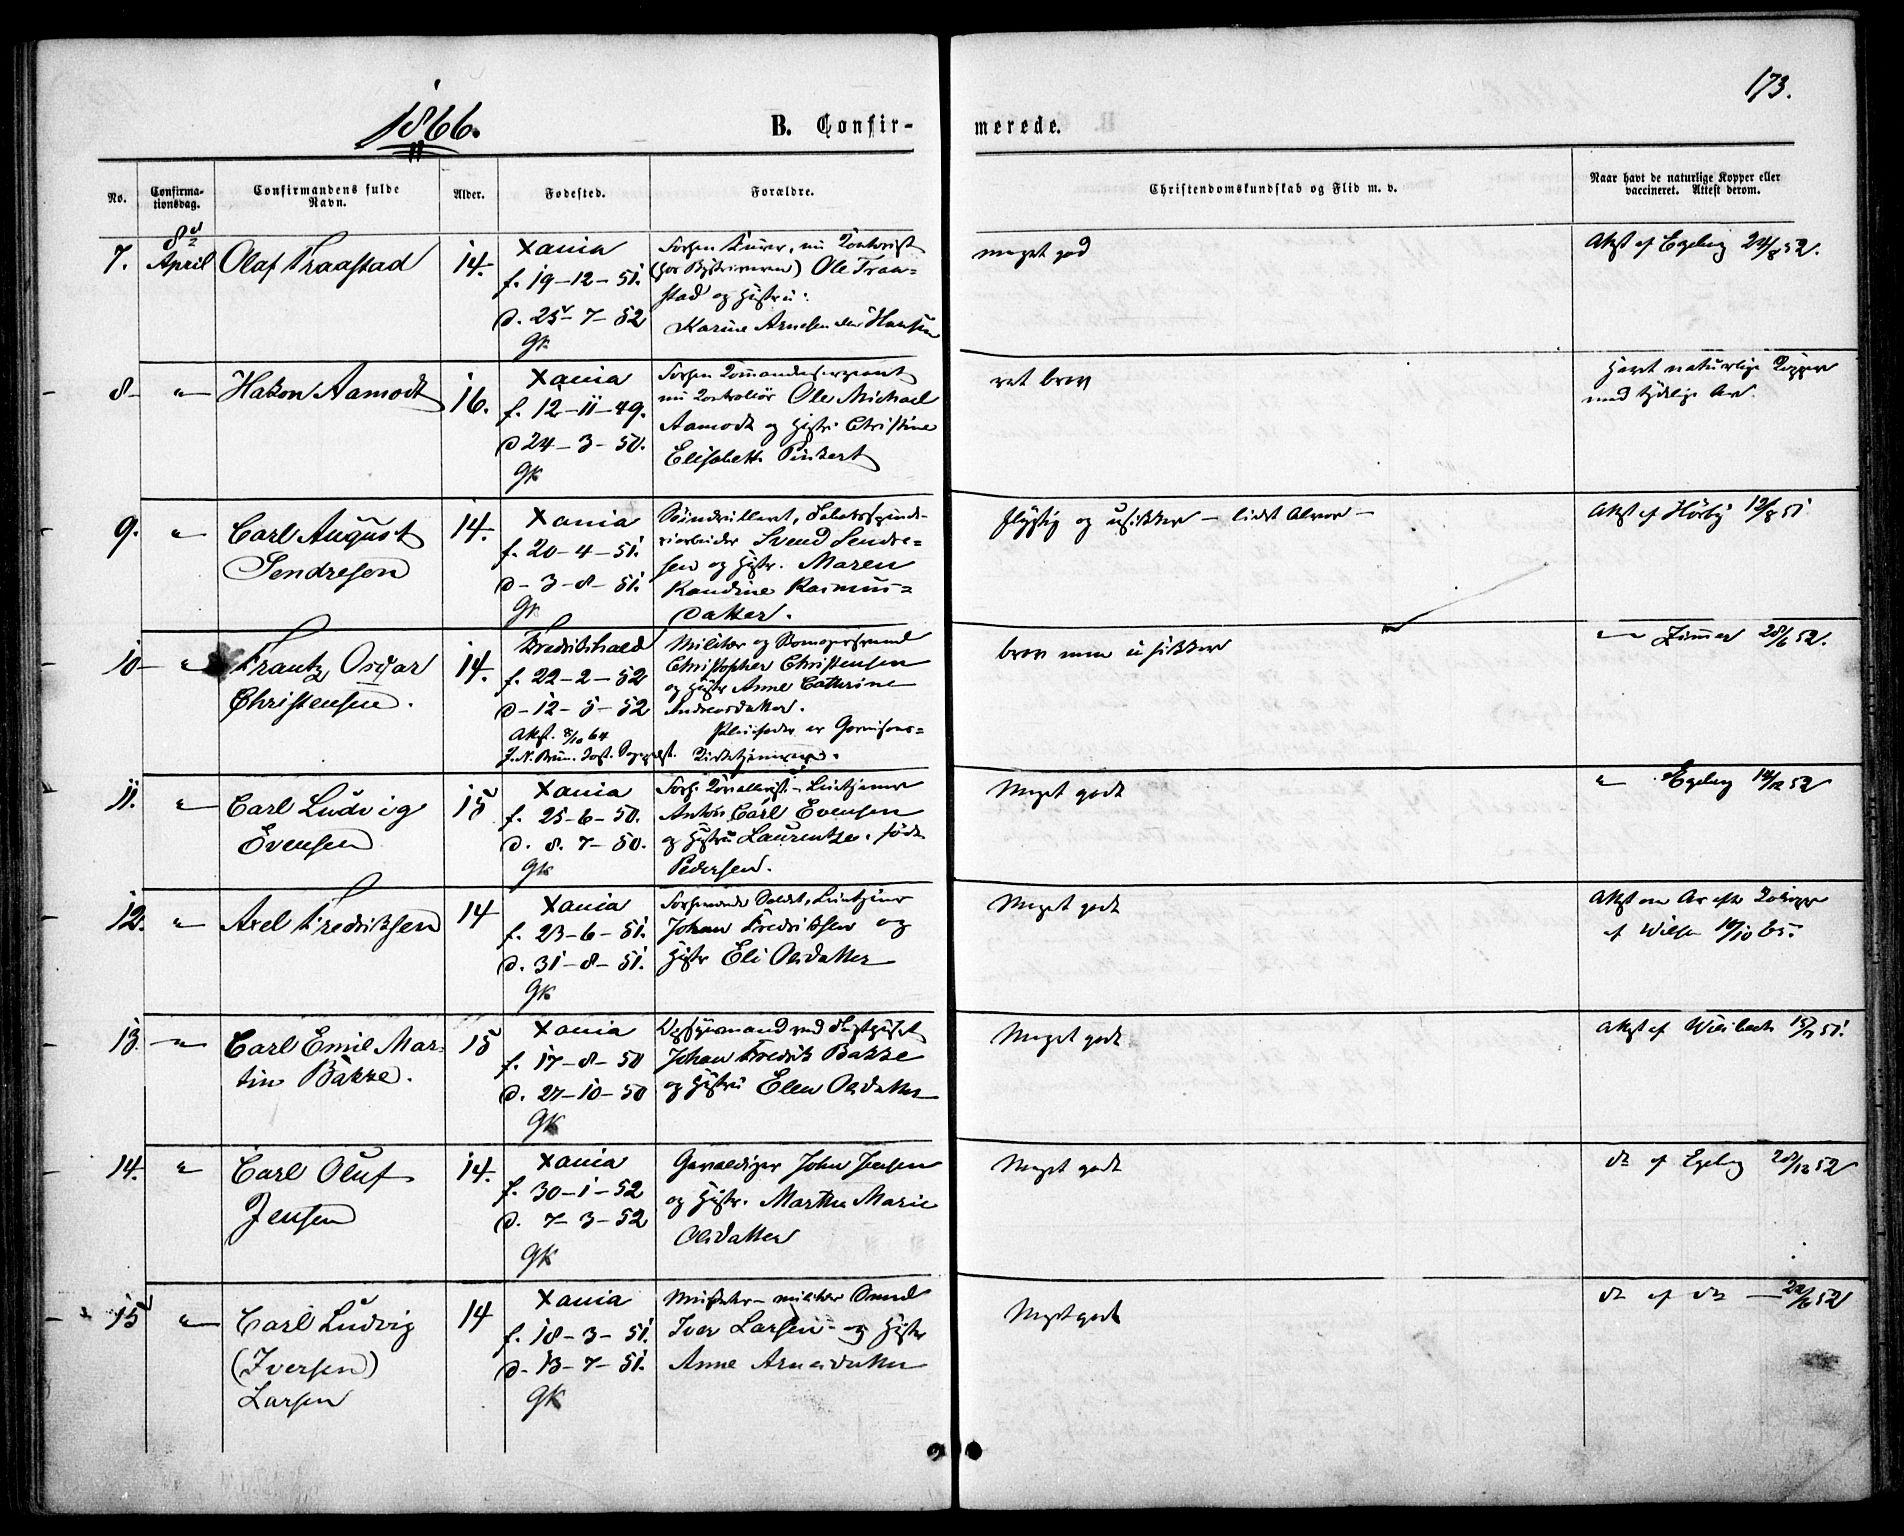 173.
1866.
B. Confir-
merede.
No.
Confirma-
tionsdag.
Confirmandens fulde
Navn.
Alder.
Fødested.
Forældre.
Christendomskundskab og Flid m. v.
Naar havt de naturlige Kopper eller
vaccineret. Attest derom.
7.
8d
April
Olaf Traastad
14.
Xania
f. 19-12-51.
d. 25-7-52
Gk
Ole Traa-
stad og Hustru
Karine Arnesen
meget god
Attst af Egeberg 24/8 52.
8
"
Hakon Aamodt
16.
Xania
f. 12-11-49.
d 24-3-50.
Gk
Ole Michael
Aamodt og Hustr. Christine
Elisabeth
ret brav
havt naturlige Kopper
med tydelige Ar.
9.
"
Carl August
Sendresen
14.
Xania
f. 20-4-51.
d-3-8-51.
Gk
Svend Sendre=
sen og Hustr. Maren
Randine Rasmus=
datter.
flygtig og usikker - lidet Alvor -
Attst af Hörbÿ 12/8 51
10
"
Frantz Oscar
Christensen.
14.
Fredrikshald
f. 22-2-52
d-12-5-52
Attst. 8/10 64
Militær og
Christopher Christensen
og Hustr Anne Cathrine
Andreasdatter.
er Garnisons=
brav men usikker
" Zimmer 28/6 52.
11.
"
Carl Ludvig
Evensen
15
Xania
f. 25-6-50.
d. 8. 7-50.
Gk
Anton Carl Evensen
og Hustru Laurentze. född
Pedersen.
Meget godt
" Egeberg 14/12 52
12.
"
Axel Fredriksen
14
Xania
f. 23-6-51.
d. 31-8-51.
Gk
Johan Fredriksen og
Hustr Eli Olsdatter
Meget godt
Attst om Ar efter Kokopper
af Wilse 10/10 65.
13.
"
Carl Emil Mar-
tin Bakke.
15
Xania
f. 17-8-50
d. 27-10-50
Gk
Johan Fredrik Bakke
og Hustru Ellen Olsdatter
Meget godt
Attst af
14.
"
Carl Oluf
Jensen
14.
Xania
f. 30-1-52
d. 7-3-52
Gk
Gevaldiger John Jensen
og Hustr. Marthe Marie
Olsdatter
Meget godt
do af Egeberg 28/12 52
15
"
Carl Ludvig
(Iversen)
Larsen
14
Xania
f. 18-3-51.
d-13-7-51.
Gk
Iver Larsen og Hustr
Anne Arnesdatter
Meget godt
do af do - 22/6 52